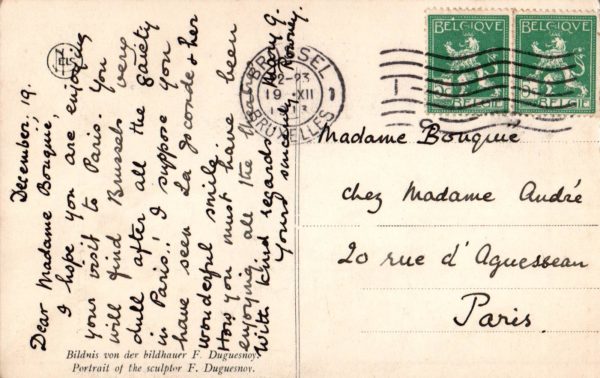 December. 19.
Dear Madame Bouquié,
I hope you are enjoying
your visit to Paris. You
will find Brussels very
dull after all the gaiety
in Paris! I suppose you
have seen La Joconde & her
wonderful smile.
How you must have been
enjoying all the theatres
With kind regards
Yours sincerely
Mary G.
Bildnis von der bildhauer F. Duguesnoy.
Portrait of the sculptor F. Duguesnoy.
BRUSSEL
12-23
19 XII
BRUXELLES
1
BELGIQUE
BELGIË
BELGIQUE
BELGIË
Madame Bouquié
chez Madame André
20 rue d'Aguesseau
Paris.